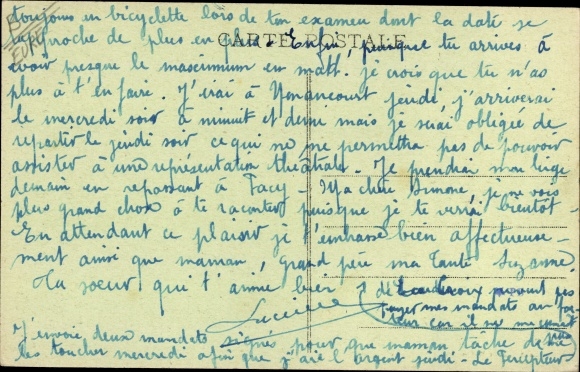 EURE
CARTE POSTALE
toujours en bicyclette lors de ton examen dont la date se
rapproche de plus en plus. Enfin, puisque tu arrives à
avoir presque le mascimum en math. je crois que tu n'as
plus à t'en faire. J'irai à Nonancourt jeudi, j'arriverai
le mercredi soir à minuit et demi mais je serai obligée de
repartir le jeudi soir ce qui ne me permettra pas de pouvoir
assister à une représentation théâtrale. Je prendrai mon linge
demain en repassant à Pacy - Ma chère Simone, je ne vois
plus grand chose à te raconter puisque je te verrai bientôt -
En attendant ce plaisir je t'embrasse bien affectueuse-
ment ainsi que maman, grand père ma Tante Suzanne.
Ta soeur qui t'aime bien
Lucienne
de
payer mes mandats au
car il ne me connait
plus
J'envoie deux mandats signés pour que maman tâche de me
les toucher mercredi afin que j'aie l'argent jeudi - Le Percepteur